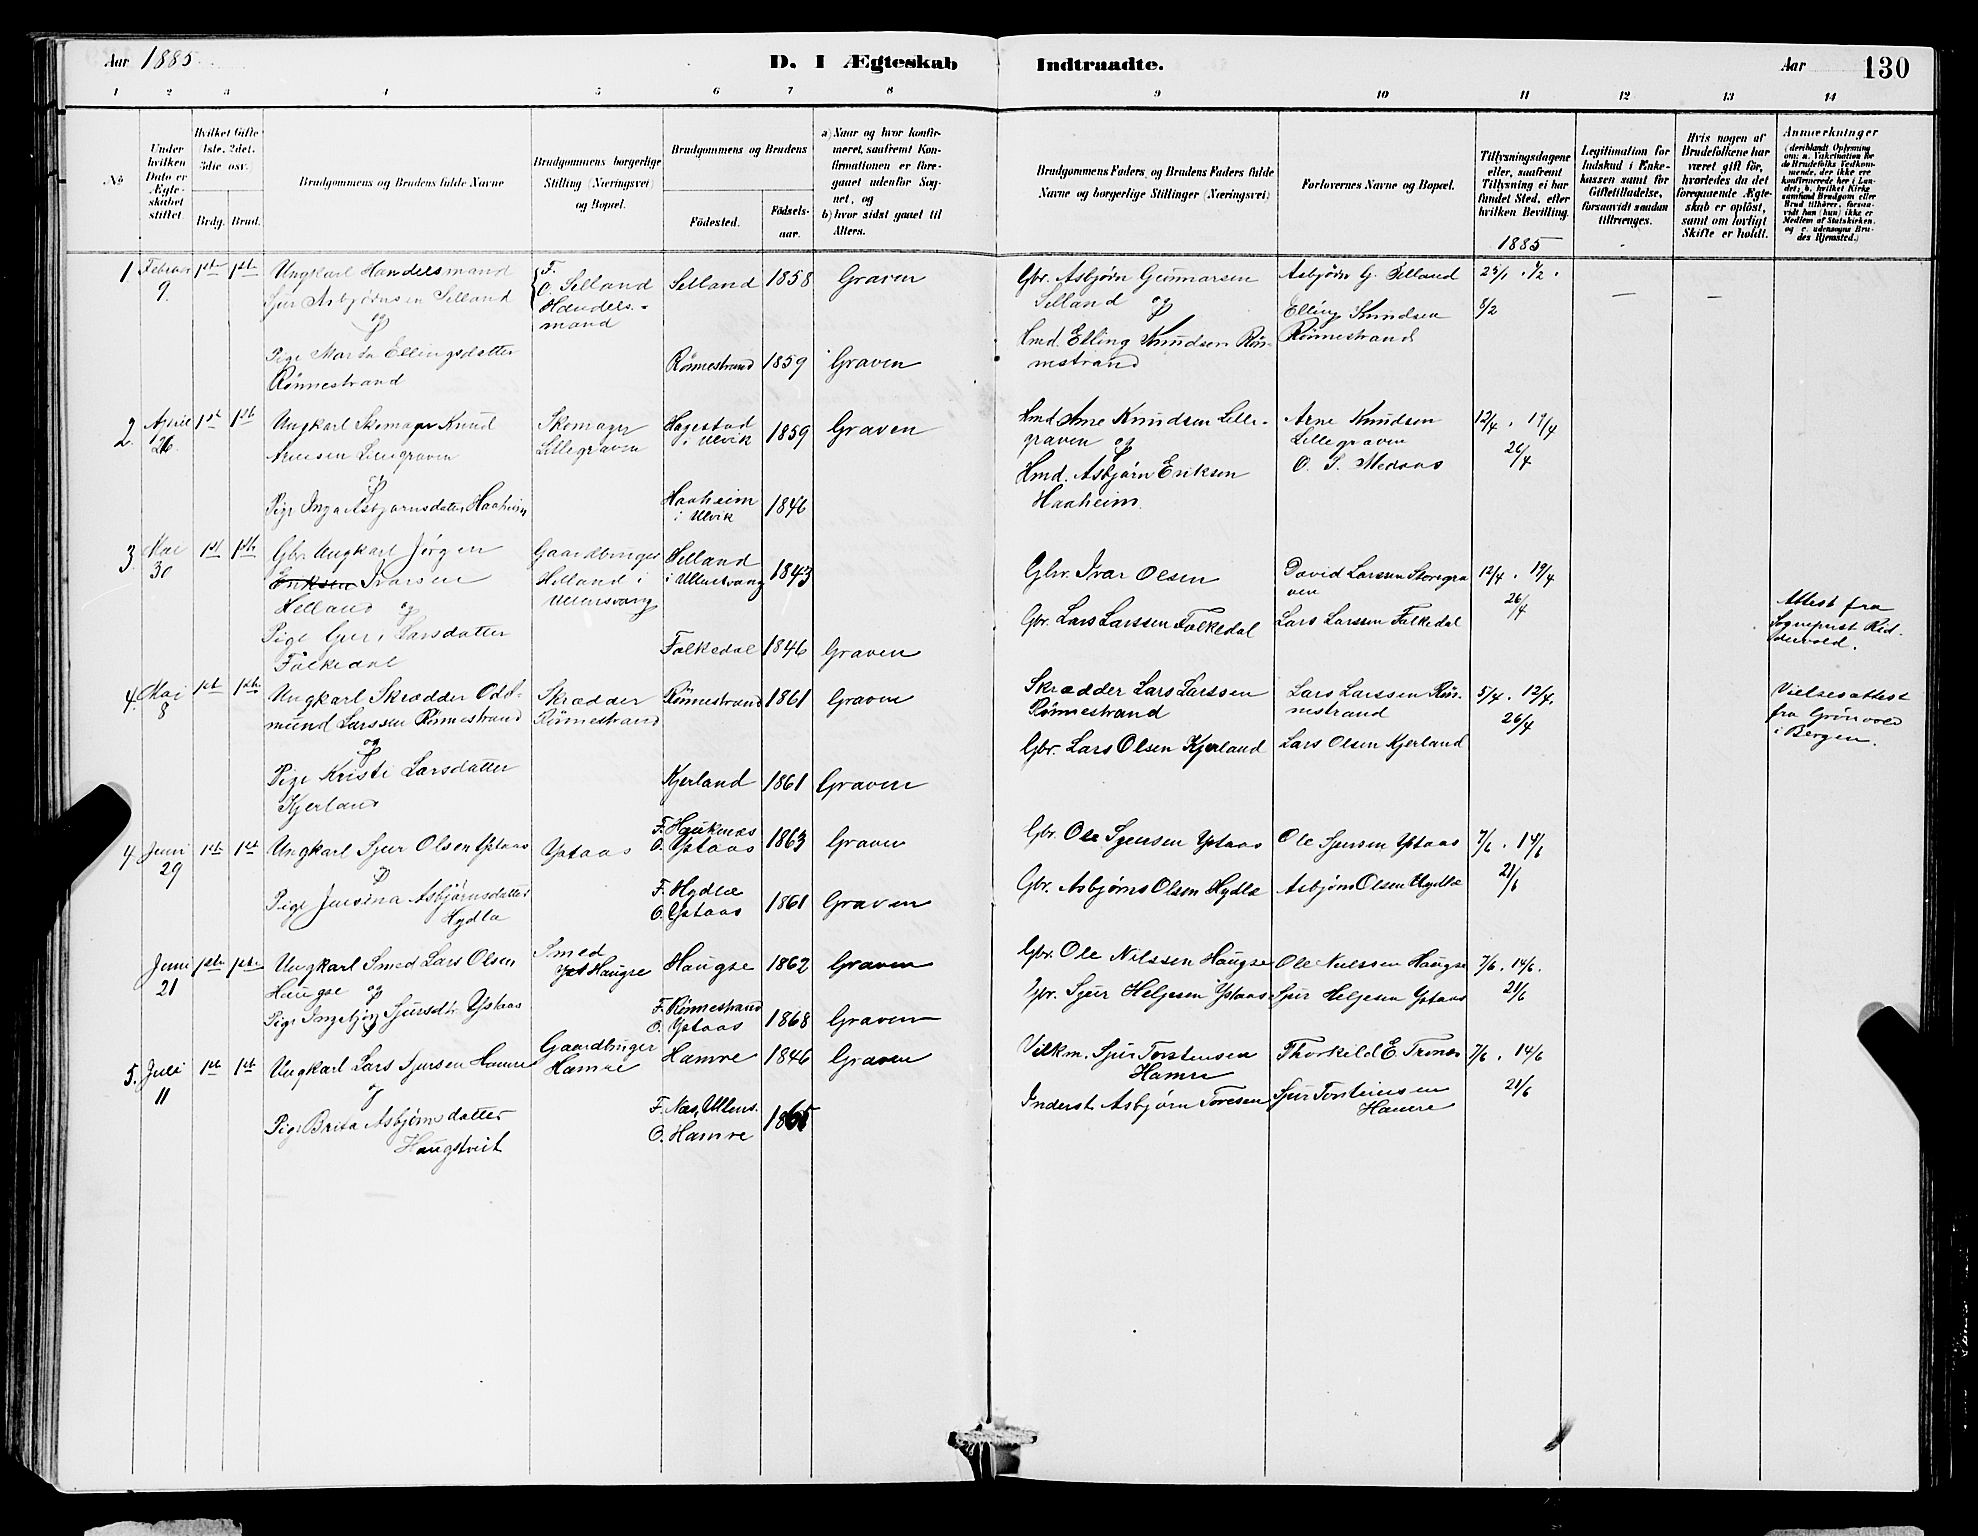 Aar 1885
D. I Ægteskab Indtraadte.
Aar
130
1 2 3 4 5 6 7 8 9 10 11 12 13 14
No
Under hvilken Dato er Ægteskabet stiftet.
Hvilket Gifte (1ste, 2det, 3die osv.
Brdg. Brud.
Brudgommens og Brudens fulde Navne
Brudgommens borgerlige Stilling (Næringsvei) og Bopæl.
Brudgommens og Brudens
Fødested.
Fødselsaar.
a) Naar og hvor konfirmeret, saafremt Konfirmationen er foregaaet udenfor Sognet, og
b) hvor sidst gaaet til Alters.
Brudgommens Faders, og Brudens Faders fulde Navne og borgerlige Stillinger (Næringsvei)
Forlovernes Navne og Bopæl.
Tillysningsdagene eller, saafremt Tillysning ei har fundet Sted, efter hvilken Bevilling.
1885
Legitimation for Indskud i Enkekassen samt for Giftetilladelse, forsaavidt saadan tiltrænges.
Hvis nogen af Brudefolkene har været gift før, hvorledes da det foregaaende Ægteskab er opløst, samt om lovligt Skifte er holdt.
Anmærkninger
(deriblandt Oplysning om: a. Vakcination for de Brudefolks Vedkommende, der ikke ere konfirmerede her i Landet; b. hvilket Kirkesamfund Brudgom eller Brud tilhører, forsaavidt han (hun) ikke er Medlem af Statskirken, og c. udensogns Brudes Hjemsted.)
1. Februar 9 1ste 1ste
Ungkarl Handelsmand
Sjur Asbjørnsen Selland
og
Pige Marta Ellingsdatter
Rönnestrand
F.
O. Selland
Handels-
mand
Selland 1858 Graven
Rönnestrand 1859 Graven
Gbr. Asbjörn Gunnarsen
Selland og
Hmd. Elling Knudsen Rön-
nestrand
Asbjörn G. Selland
Elling Knudsen
Rönnestrand
25/1. 1/2.
8/2
2. April 26 1st 1ste
Ungkarl Skomager Knud
Arnesen
og
Pige Inga Asbjørnsdatter Haaheim
Skomager
Lillegraven
Hagestad
i Ulvik 1859 Graven
Haaheim
i Ulvik 1846
Hmd. Arne Knudsen Lille-
graven og
Hmd. Asbjørn Eriksen
Haaheim.
Arne Knudsen
Lillegraven
O. S. Medaas
12/4. 19/4
26/4
3. Mai 30 1st 1ste
Gbr. Ungkarl Jørgen
Eriksen Ivarsen
Helland og
Pige Guri Larsdatter
Folkedal
Gaardbruger
Helland i
Ullensvang
Helland
i Ullensvang 1843
Folkedal 1846 Graven
Gbr. Ivar Olsen
Gbr. Lars Larssen Folkedal
David Larssen Storegra
ven
Lars Larssen Folkedal
12/4. 19/4
26/4
Attest fra
Sognepræst Rid-
dervold.
4. Mai 8 1ste 1ste
Ungkarl Skrædder Odd-
mund Larssen Rönnestrand
og
Pige Kristi Larsdatter
Kjerland
Skrædder
Rönnestrand
Rönnestrand 1861 Graven
Kjerland 1861 Graven
Skrædder Lars Larssen
Rönnestrand
Gbr. Lars Olsen Kjerland
Lars Larssen Rön-
nestrand
Lars Olsen Kjerland
5/4. 12/4.
26/4
Vielsesattest
fra Grönvold
i Bergen.
4. Juni 29 1ste 1ste
Ungkarl Sjur Olsen Ystaas
og
Pige Asbjørnsdatter
Hydla
Ystaas
F. Hauknæs
O. Ystaas 1863 Graven
F. Hydle
O. Ystaas 1861 Graven
Gbr. Ole Sjursen Ystaas
Gbr. Asbjørn Olsen Hydle
Ole Sjursen Ystaas
Asbjørn Olsen Hydle
7/6. 14/6
21/6
Juni 21 1ste 1ste
Ungkarl Smed Lars Olsen
Haugse og
Pige Ingebjørg Sjursdtr. Ystaas
Smed
Haugse
Haugse 1862 Graven
F. Rönnestrand
O. Ystaas 1868 Graven
Gbr. Ole Nilssen Haugse
Gbr. Sjur Helgesen Ystaas
Ole Nilssen Haugse
Sjur Helgesen Ystaas
7/6. 14/6.
21/6
5. Juli 11 1ste 1ste
Ungkarl Lars Sjursen Hamre
og
Pige Brita Asbjørnsdatter
Haugstveit
Gaardbruger
Hamre
Hamre 1846 Graven
F. Næs, Ullens.
O. Hamre 1865
Vilkm. Sjur Torstensen
Hamre
Inderst Asbjørn Toresen
Thorkild E. Trones
Sjur Torsteinsen
Hamre
7/6. 14/6
21/6